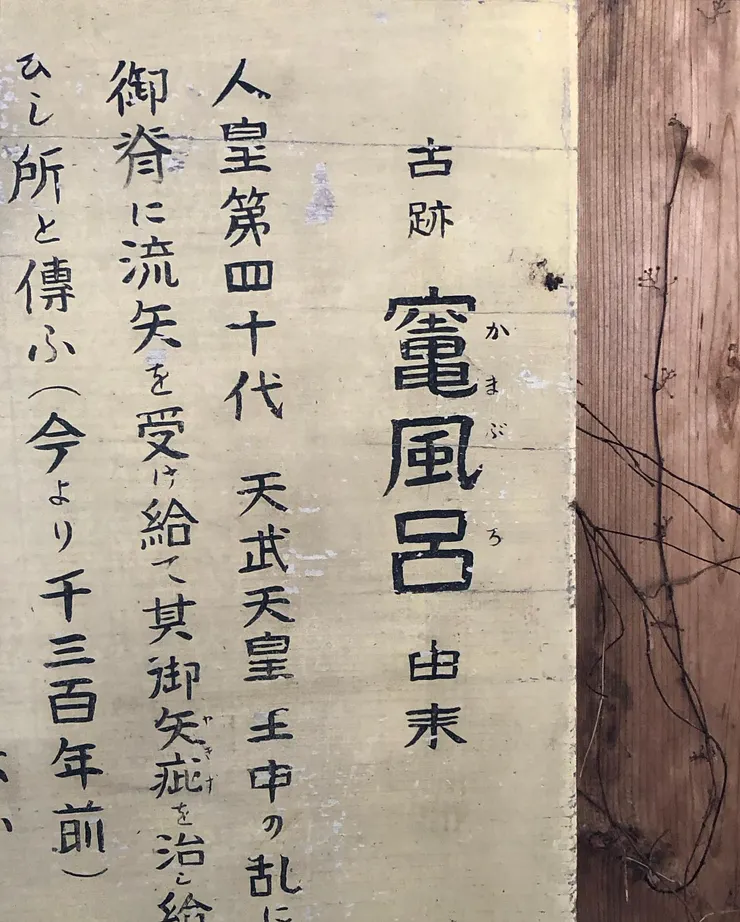 古跡 竃風呂 由来
かまぶろ
人皇第四十代 天武天皇 壬申の乱に
御脊に流矢を受け給て其御矢疵を治し給
ひし所と傳ふ（今より千三百年前）